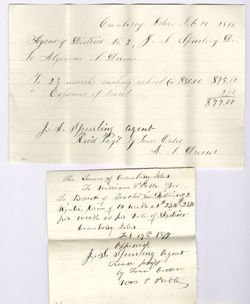 Cranberry Isles Feb 10 1877
Agent of District No 2, J. S. Spurling Dr.
To
To 2½ months teaching school @ $30.00 $75.00
" Expense of travel 2.00
$77.00
J. S. Spurling Agent
Rec'd Payt by Town Order
The Town of Cranberry Isles
To William P Preble Dr
To Board of Teacher in District No 2
Winter term of 10 weeks at $2.50
per week as per vote of District
Cranberry Isles
Feb 17th 1877
Approved
J. S. Spurling Agent
Recd payt
by Town Order
Wm P Preble